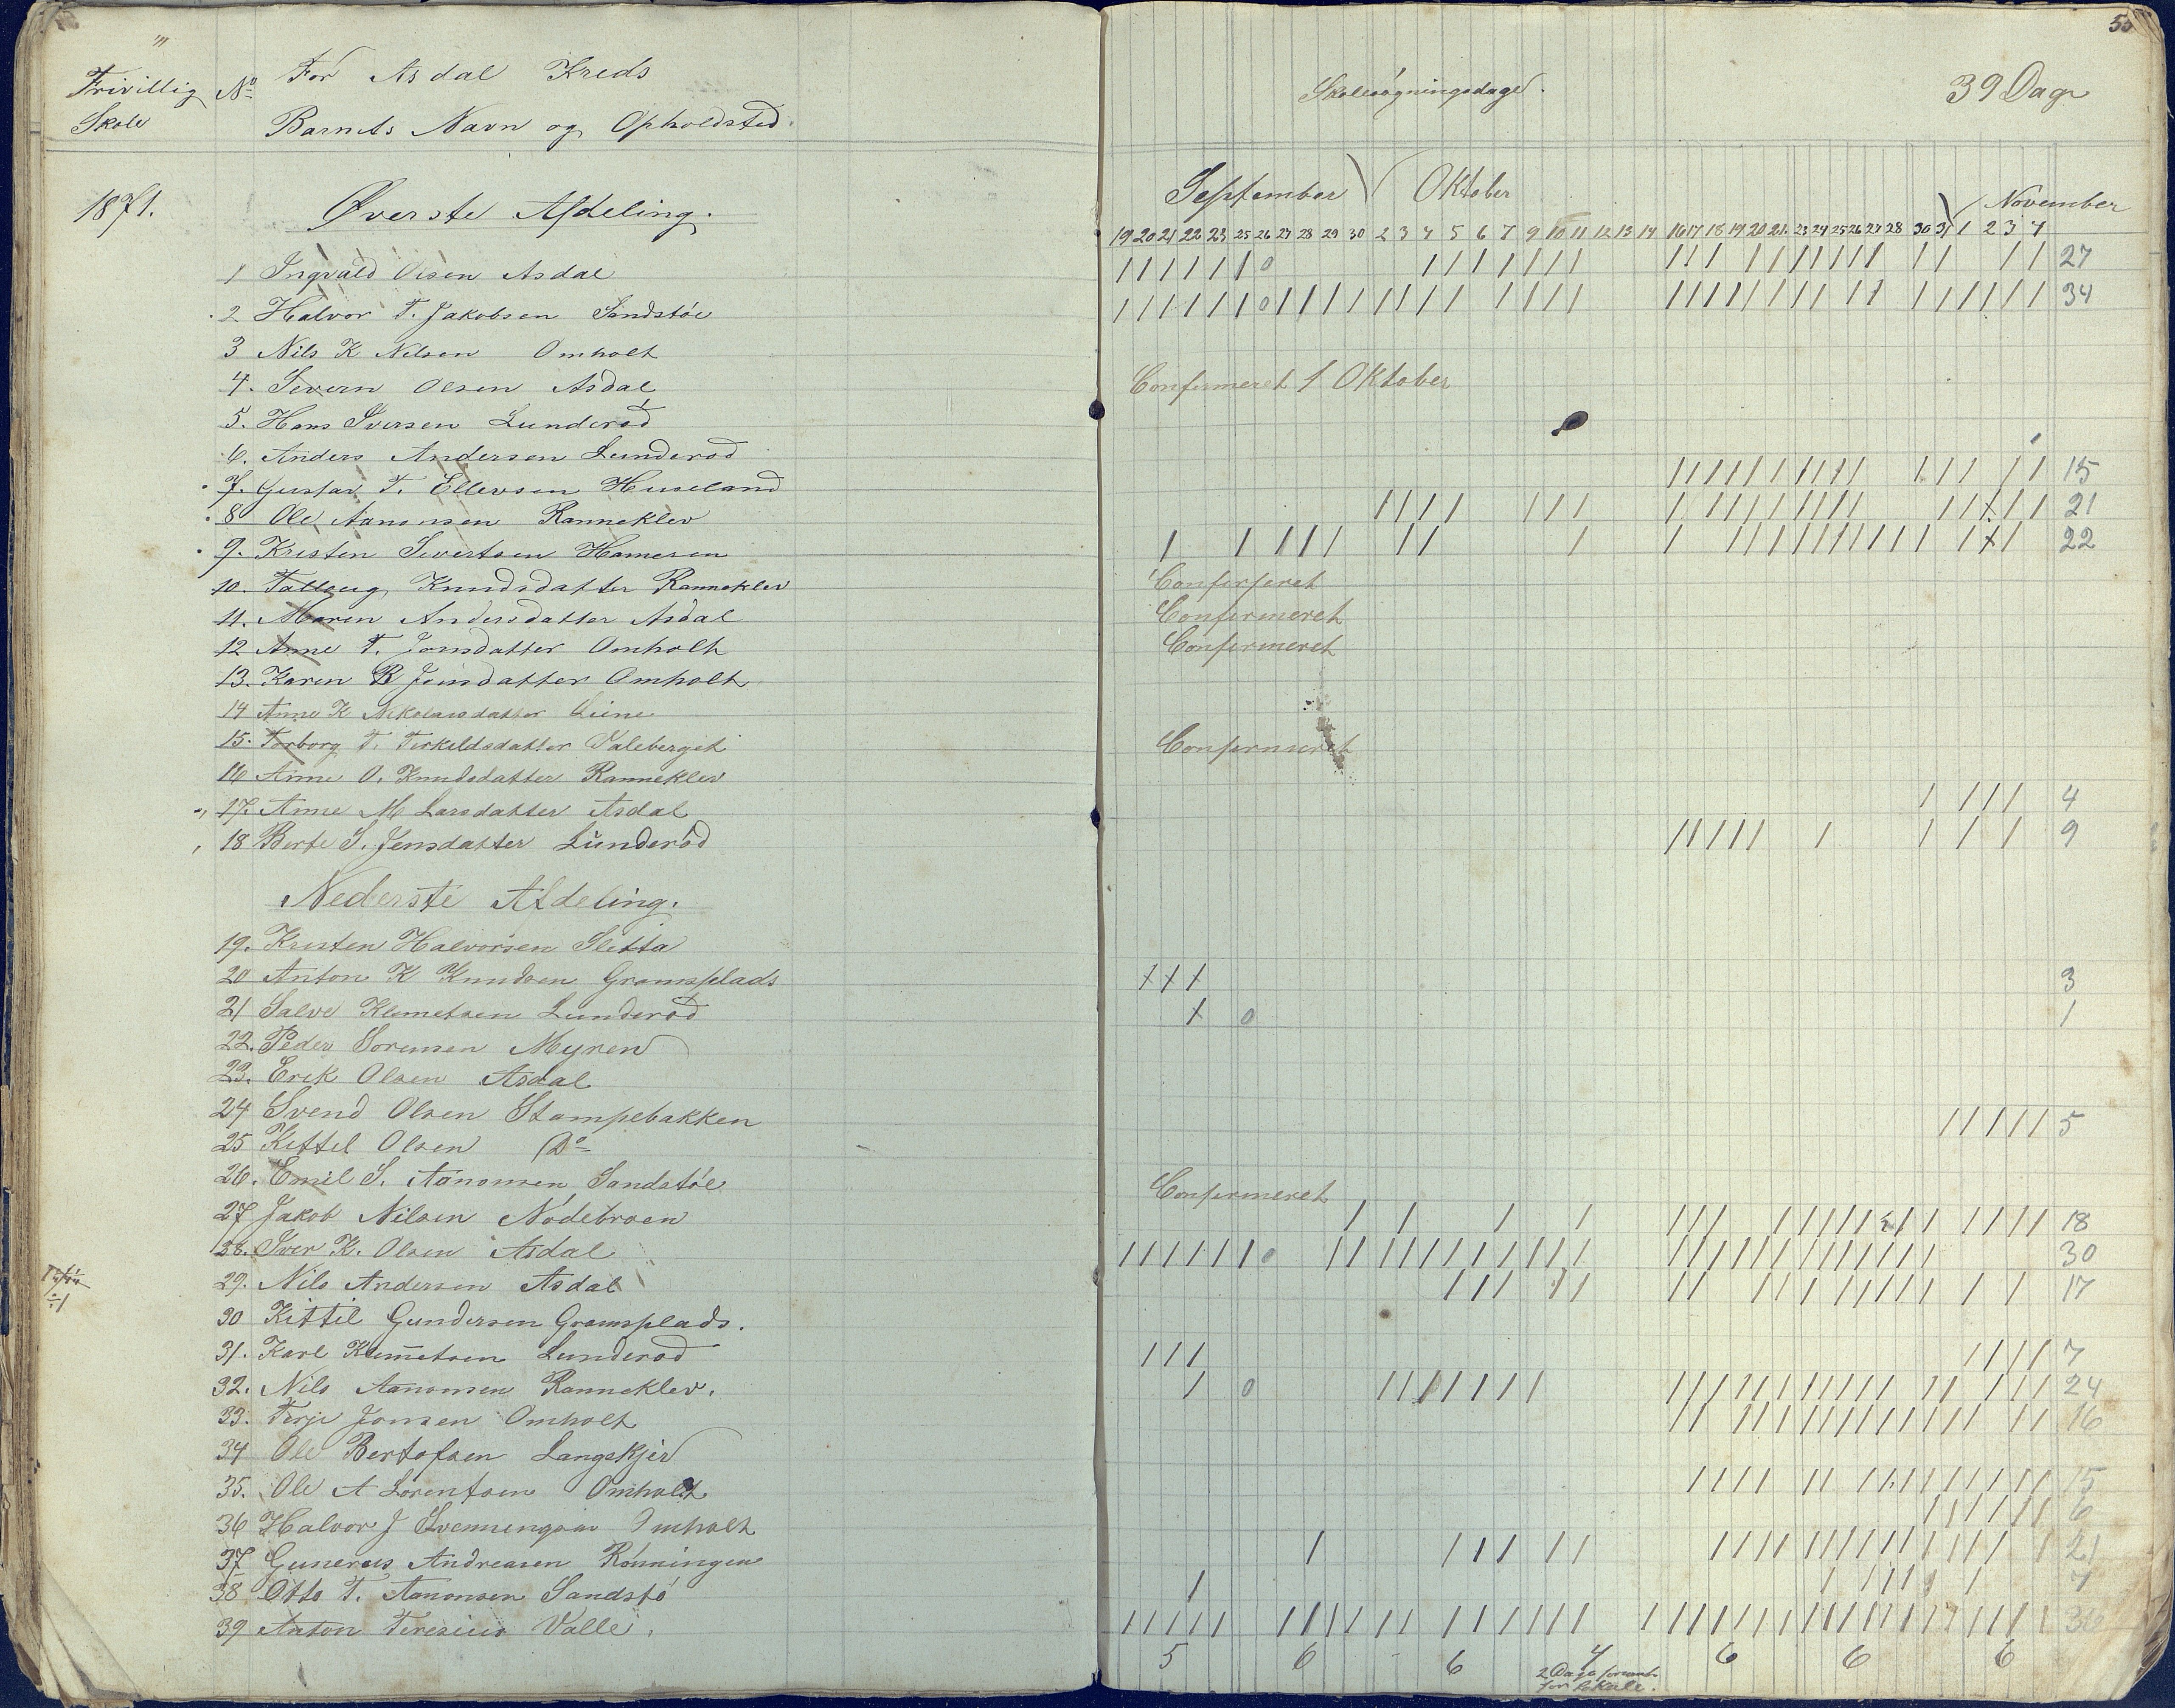 Frivillig Skole
No
For Asdal Kreds
Barnets Navn og Opholdsted.
1871.
Øverste Afdeling.
1 Ingvald Olsen Asdal
2 Halvor T. Jakobsen Sandstøe
3 Nils K Nilsen Omholt
4. Severn Olsen Asdal
5. Hans Iversen Lunderød
6. Anders Andersen Lunderød
7. Gustav T. Ellevsen Huseland
8 Ole Aanonsen Ranneklev
9. Kristen Sivertsen Hameren
10. Talleug Knudsdatter Ranneklev
11. Maren Andersdatter Asdal
12 Anne T. Jonsdatter Omholt
13. Karen B Jonsdatter Omholt
14 Anne K Nikolaisdatter Liene
15. Torborg T. Terkeldsdatter Valeberget
16 Anne O. Knudsdatter Ranneklev
17. Anne M Larsdatter Asdal
18 Berte S. Jensdatter Lunderød
Nederste Afdeling.
19. Kristen Halvorsen Sletta
20 Anton K Knudsen Gramsplads
21 Salve Klemetsen Lunderød
22. Peder Sørensen Myren
23. Erik Olsen Asdal
24 Svend Olsen Stampebakken
25 Kittel Olsen Do
26. Emil S. Aanonsen Sandstøe
27 Jakob Nilsen Nødebroen
28. Iver K. Olsen Asdal
29. Nils Andersen Asdal
30 Kittil Gundersen Gramsplads.
31. Karl Klemetsen Lunderød
32. Nils Aanonsen Ranneklev.
33. Terje Jonsen Omholt
34 Ole Bertofsen Langskjer
35. Ole A Lorentsen Omholt
36 Halvor J Svenningsen Omholt
37 Gunerus Andreasen Rønningen
38 Otto T. Aanonsen Sandstø
39 Anton Teresius Valle.
Skolesøgningsdage.
39 Dage
September Oktober November
19 20 21 22 23 25 26 27 28 29 30 2 3 4 5 6 7 9 10 11 12 13 14 16 17 18 19 20 21 23 24 25 26 27 28 30 31 1 2 3 4
27
34
Confirmeret 1 Oktober
15
21
22
Confirmeret
Confirmeret
Confirmeret
Confirmeret
4
9
3
1
5
Confirmeret
18
30
17
7
24
16
15
6
21
7
36
5 6 6 4 6 6 6
2 Dage
for Lokale.